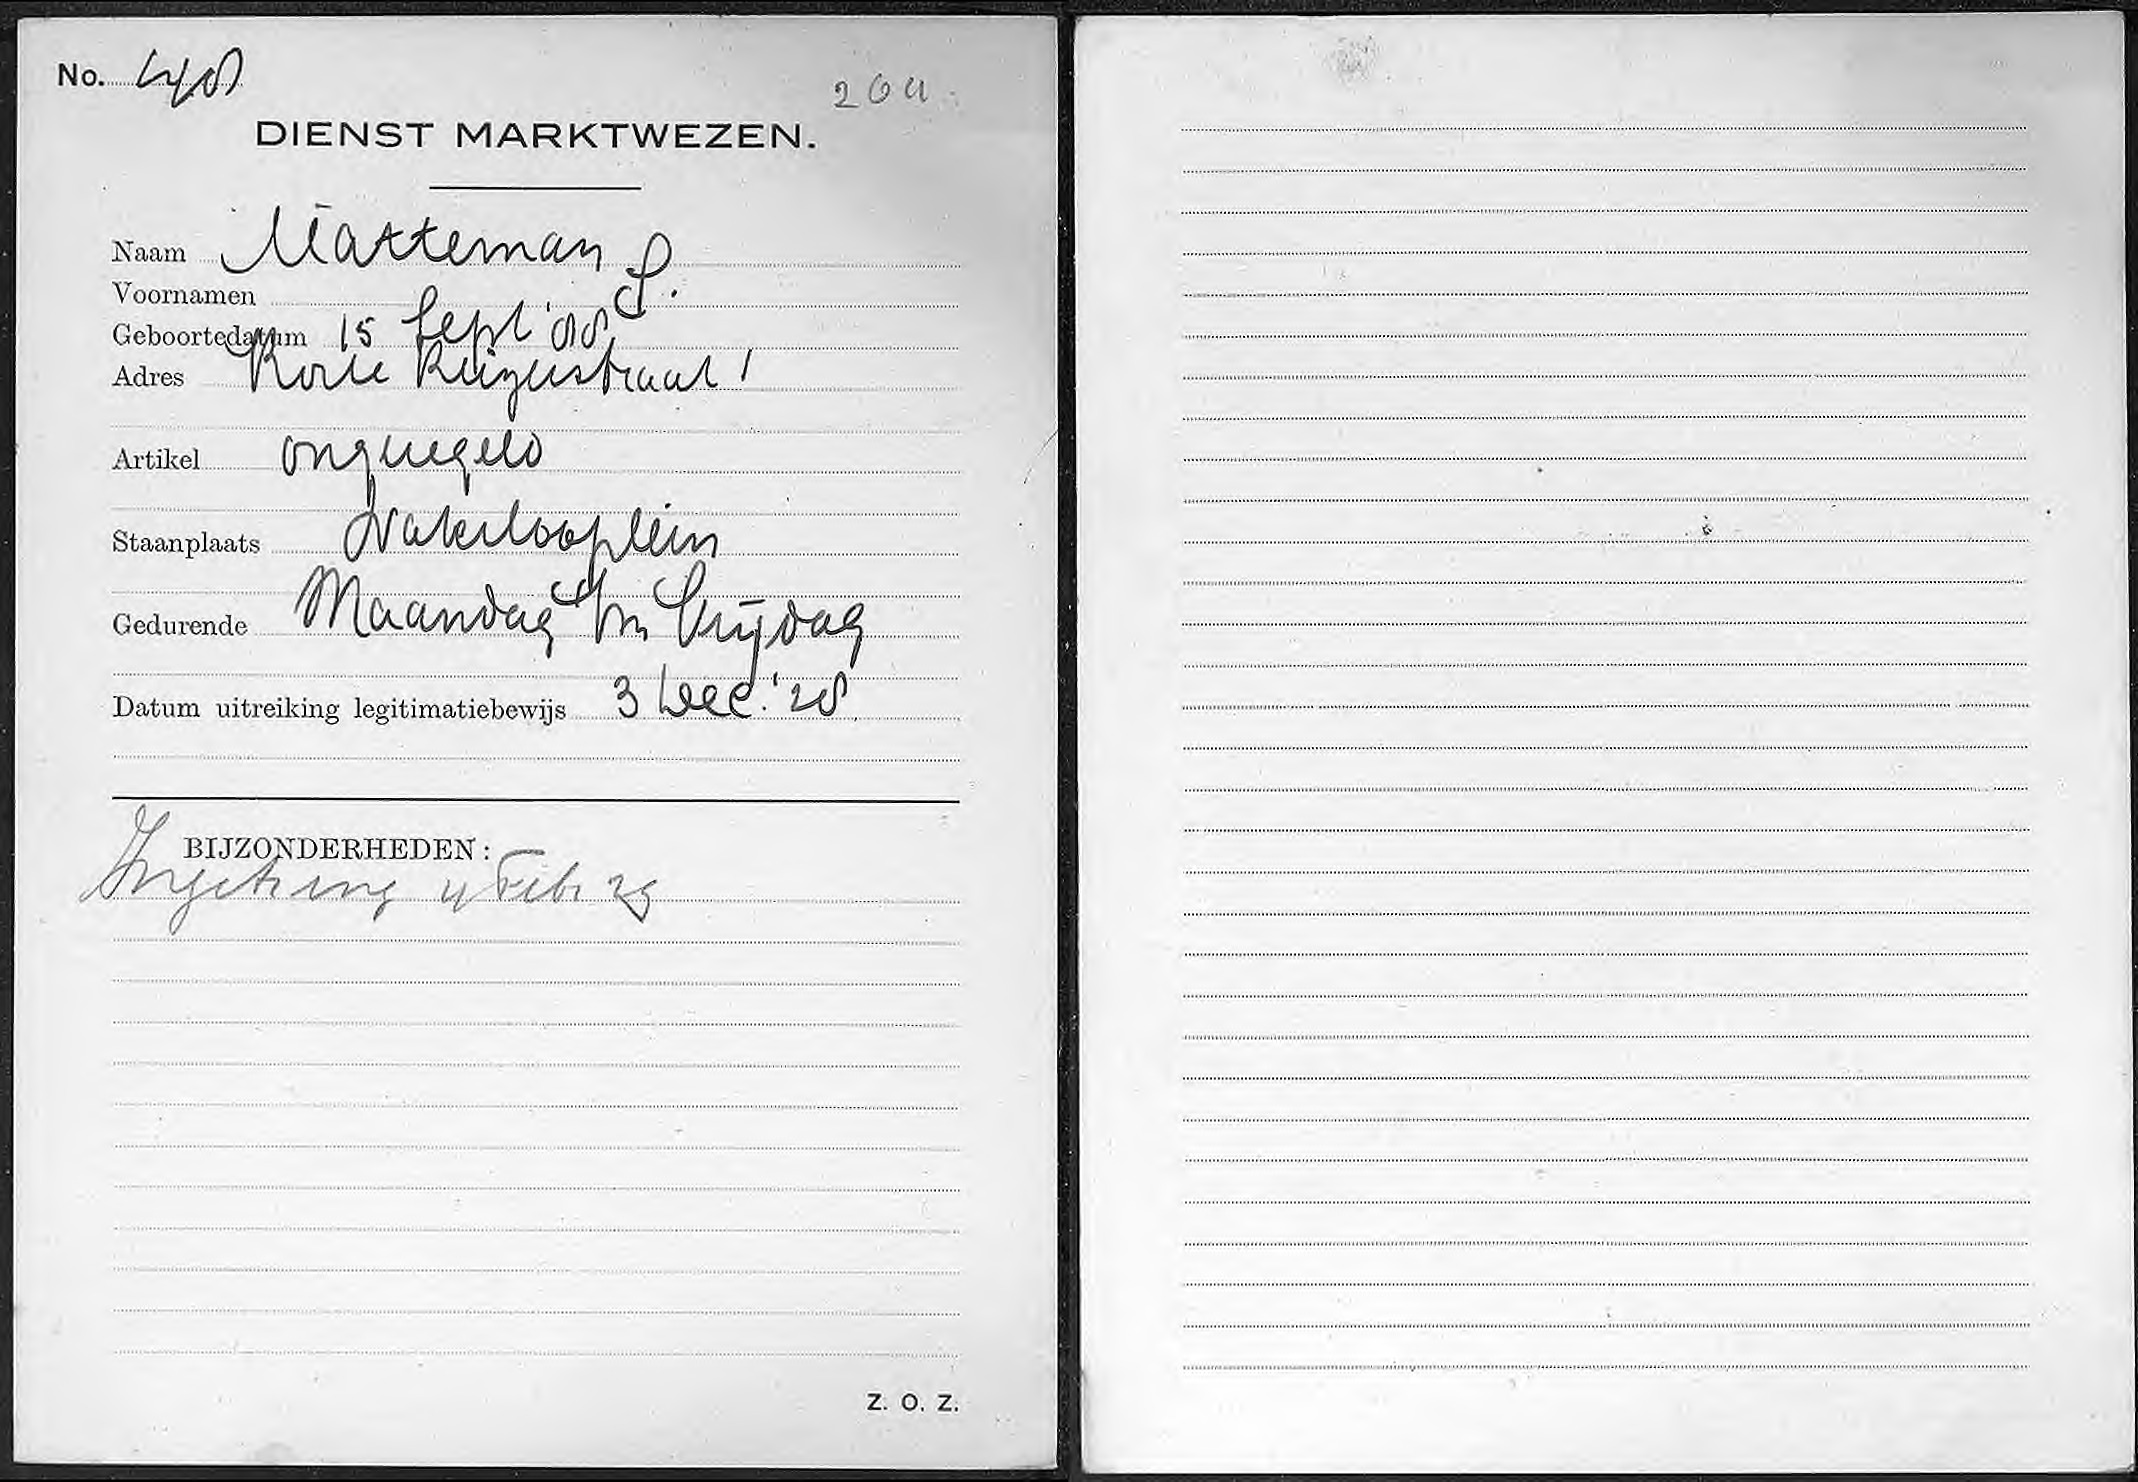 No. 48
204
DIENST MARKTWEZEN.
Naam Matteman
Voornamen S.
Geboortedatum 15 Sept '88
Adres Korte Keizerstraat 1
Artikel ongeregeld
Staanplaats Waterlooplein
Gedurende Maandag t/m Vrijdag
Datum uitreiking legitimatiebewijs 3 Dec. '28
BIJZONDERHEDEN:
4 Febr 29
Z. O. Z.